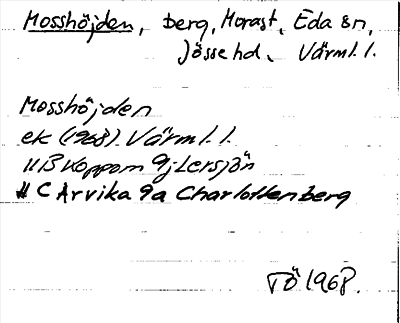 Mosshöjden, berg, Morast, Eda sn,
Jösse hd, Värml. l.
Mosshöjden
ek (1968) Värml. l.
11B Koppom 9j Lersjön
11C Arvika 9a Charlottenberg
TÖ 1968.